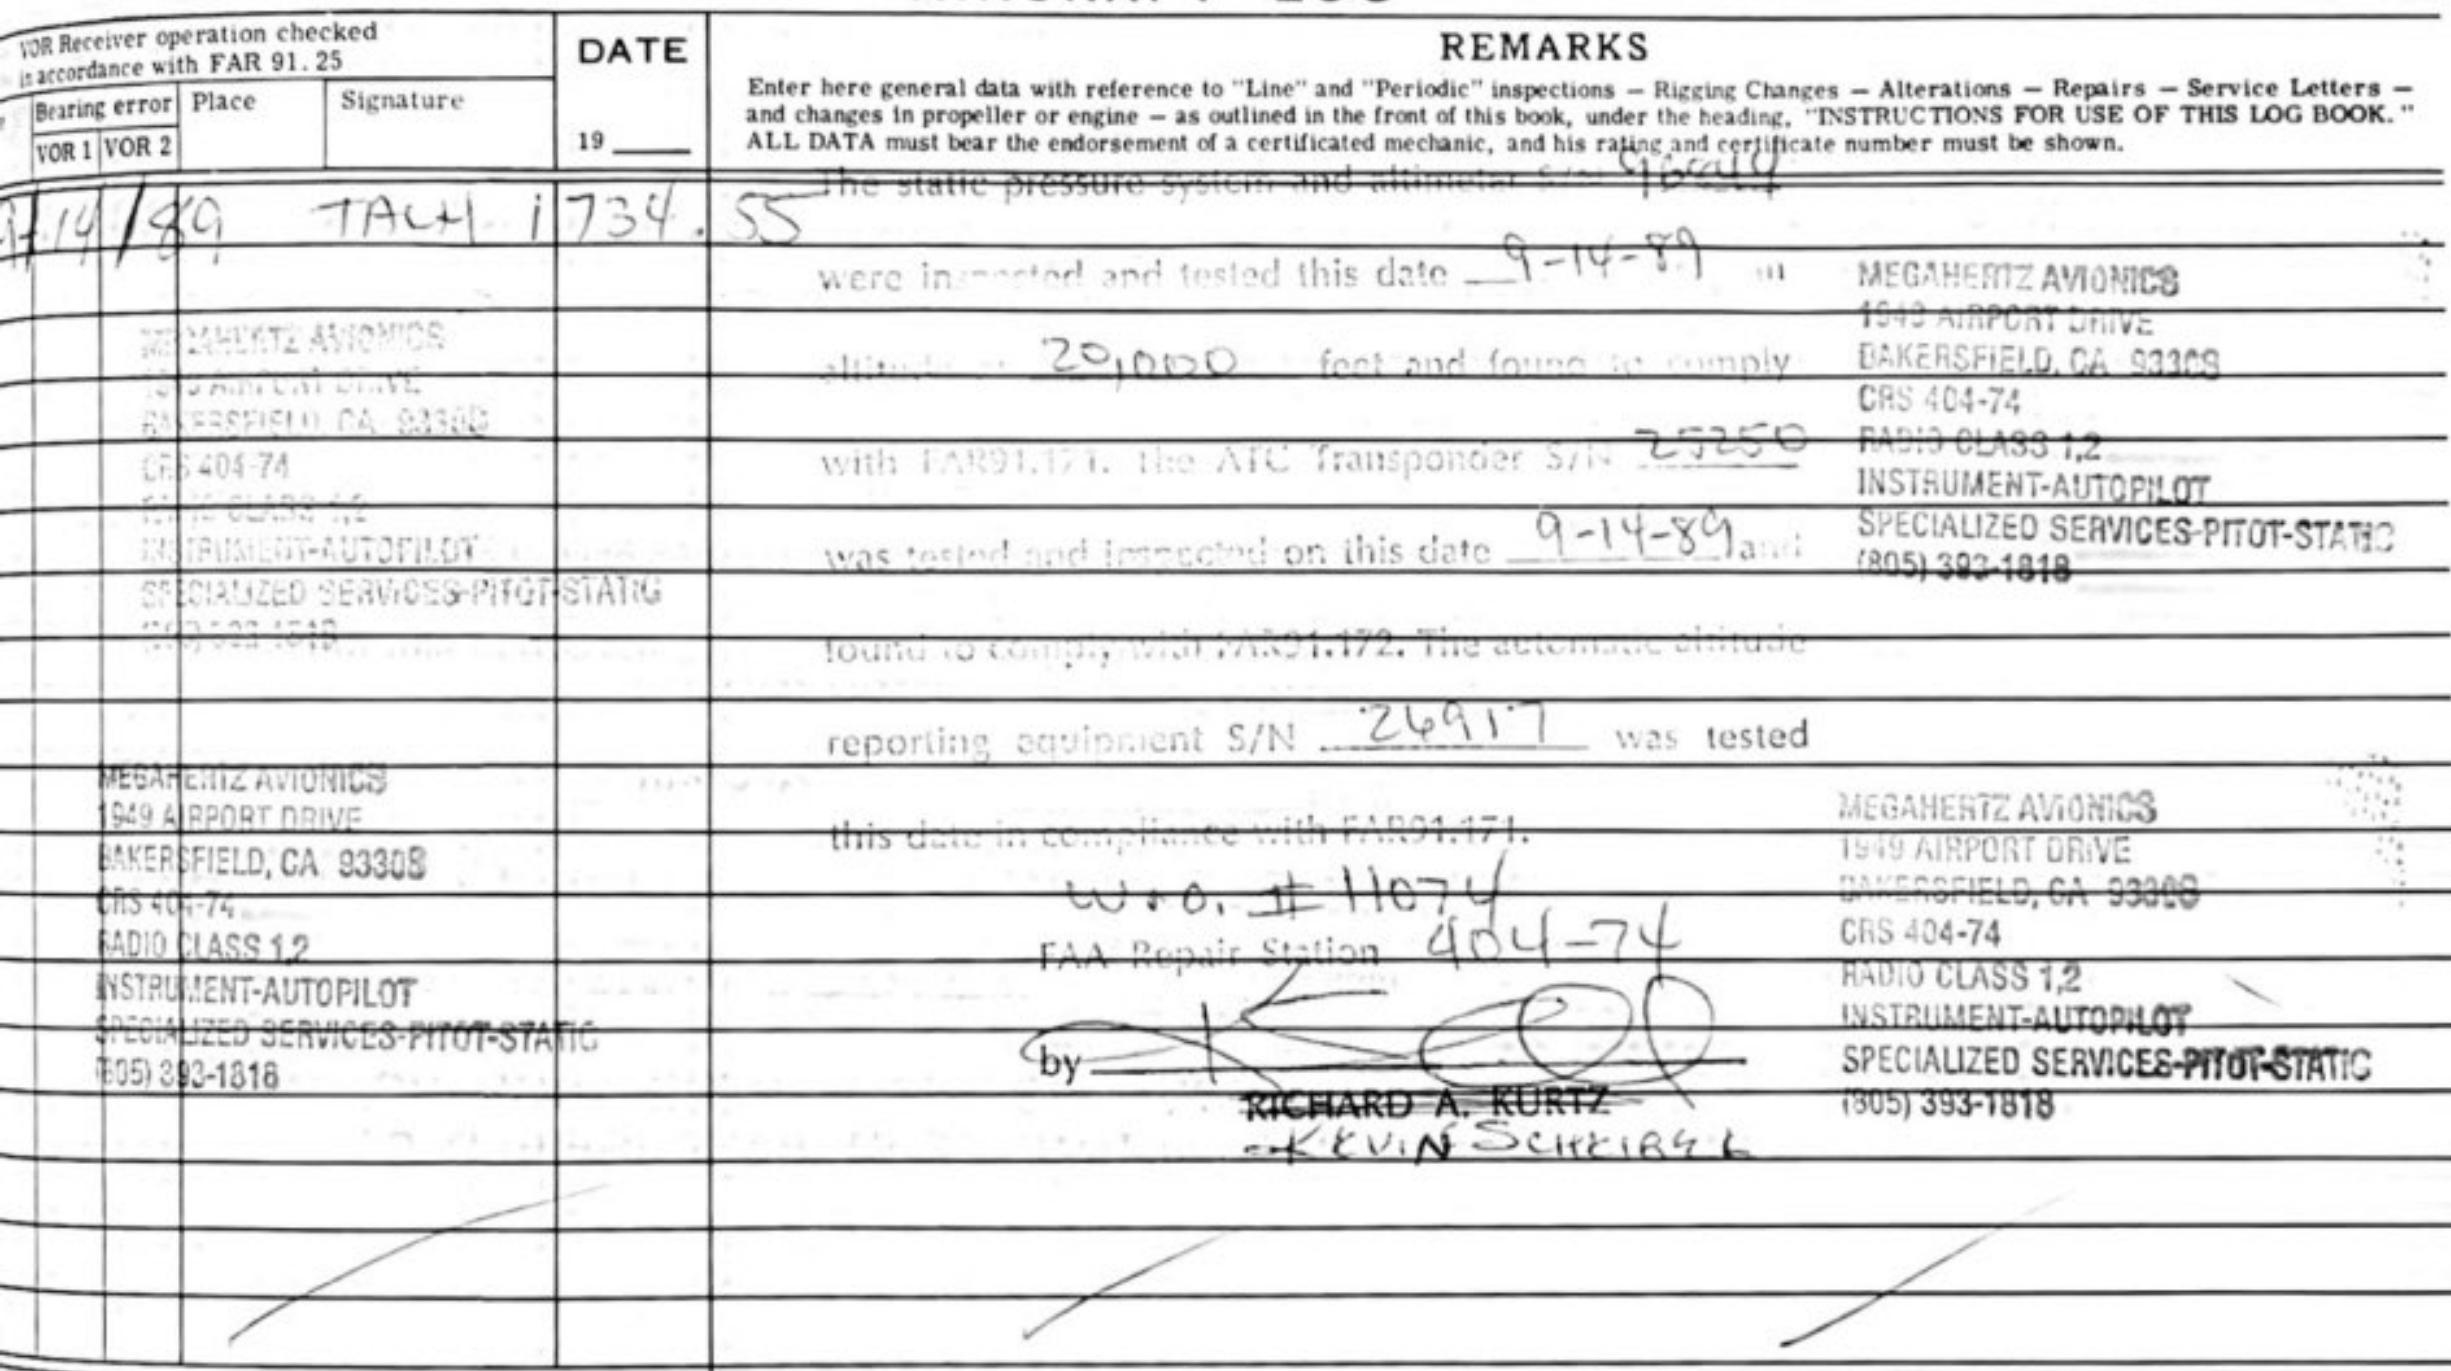 VOR Receiver operation checked
in accordance with FAR 91.25
Bearing error Place Signature
VOR 1 VOR 2
DATE
19
REMARKS
Enter here general data with reference to "Line" and "Periodic" inspections — Rigging Changes — Alterations — Repairs — Service Letters —
and changes in propeller or engine — as outlined in the front of this book, under the heading, "INSTRUCTIONS FOR USE OF THIS LOG BOOK."
ALL DATA must bear the endorsement of a certificated mechanic, and his rating and certificate number must be shown.
The static pressure system and altimeter S/N
14/89 TACH 1734.55
were inspected and tested this date 9-14-89
altitude 20,000 feet and found to comply
with FAR91.171. The ATC Transponder S/N 25250
was tested and inspected on this date 9-14-89 and
found to comply with FAR91.172. The automatic altitude
reporting equipment S/N 26917 was tested
this date in compliance with FAR91.171.
W.O. # 11074
FAA Repair Station 404-74
by
RICHARD A. KURTZ
KEVIN
MEGAHERTZ AVIONICS
1949 AIRPORT DRIVE
BAKERSFIELD, CA 93308
CRS 404-74
RADIO CLASS 1,2
INSTRUMENT-AUTOPILOT
SPECIALIZED SERVICES-PITOT-STATIC
(805) 393-1818
MEGAHERTZ AVIONICS
1949 AIRPORT DRIVE
BAKERSFIELD, CA 93308
CRS 404-74
RADIO CLASS 1,2
INSTRUMENT-AUTOPILOT
SPECIALIZED SERVICES-PITOT-STATIC
(805) 393-1818
MEGAHERTZ AVIONICS
1949 AIRPORT DRIVE
BAKERSFIELD, CA 93308
CRS 404-74
RADIO CLASS 1,2
INSTRUMENT-AUTOPILOT
SPECIALIZED SERVICES-PITOT-STATIC
(805) 393-1818
MEGAHERTZ AVIONICS
1949 AIRPORT DRIVE
BAKERSFIELD, CA 93308
CRS 404-74
RADIO CLASS 1,2
INSTRUMENT-AUTOPILOT
SPECIALIZED SERVICES-PITOT-STATIC
(805) 393-1818